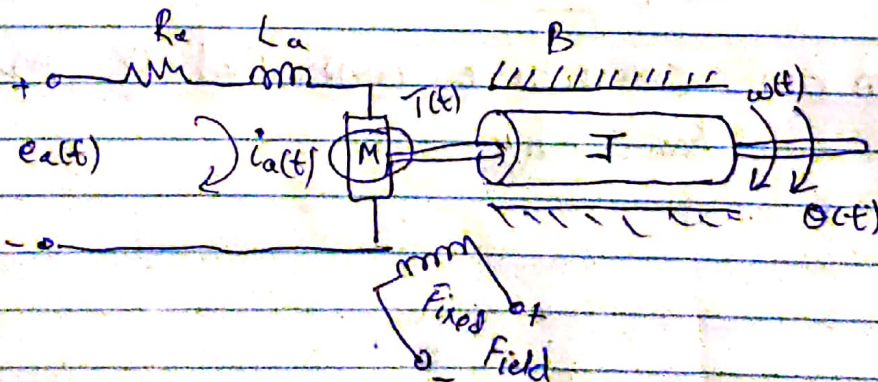 Ra La B
+ T(t) ω(t)
ea(t) ia(t) M J
- θ(t)
Fixed +
Field
-